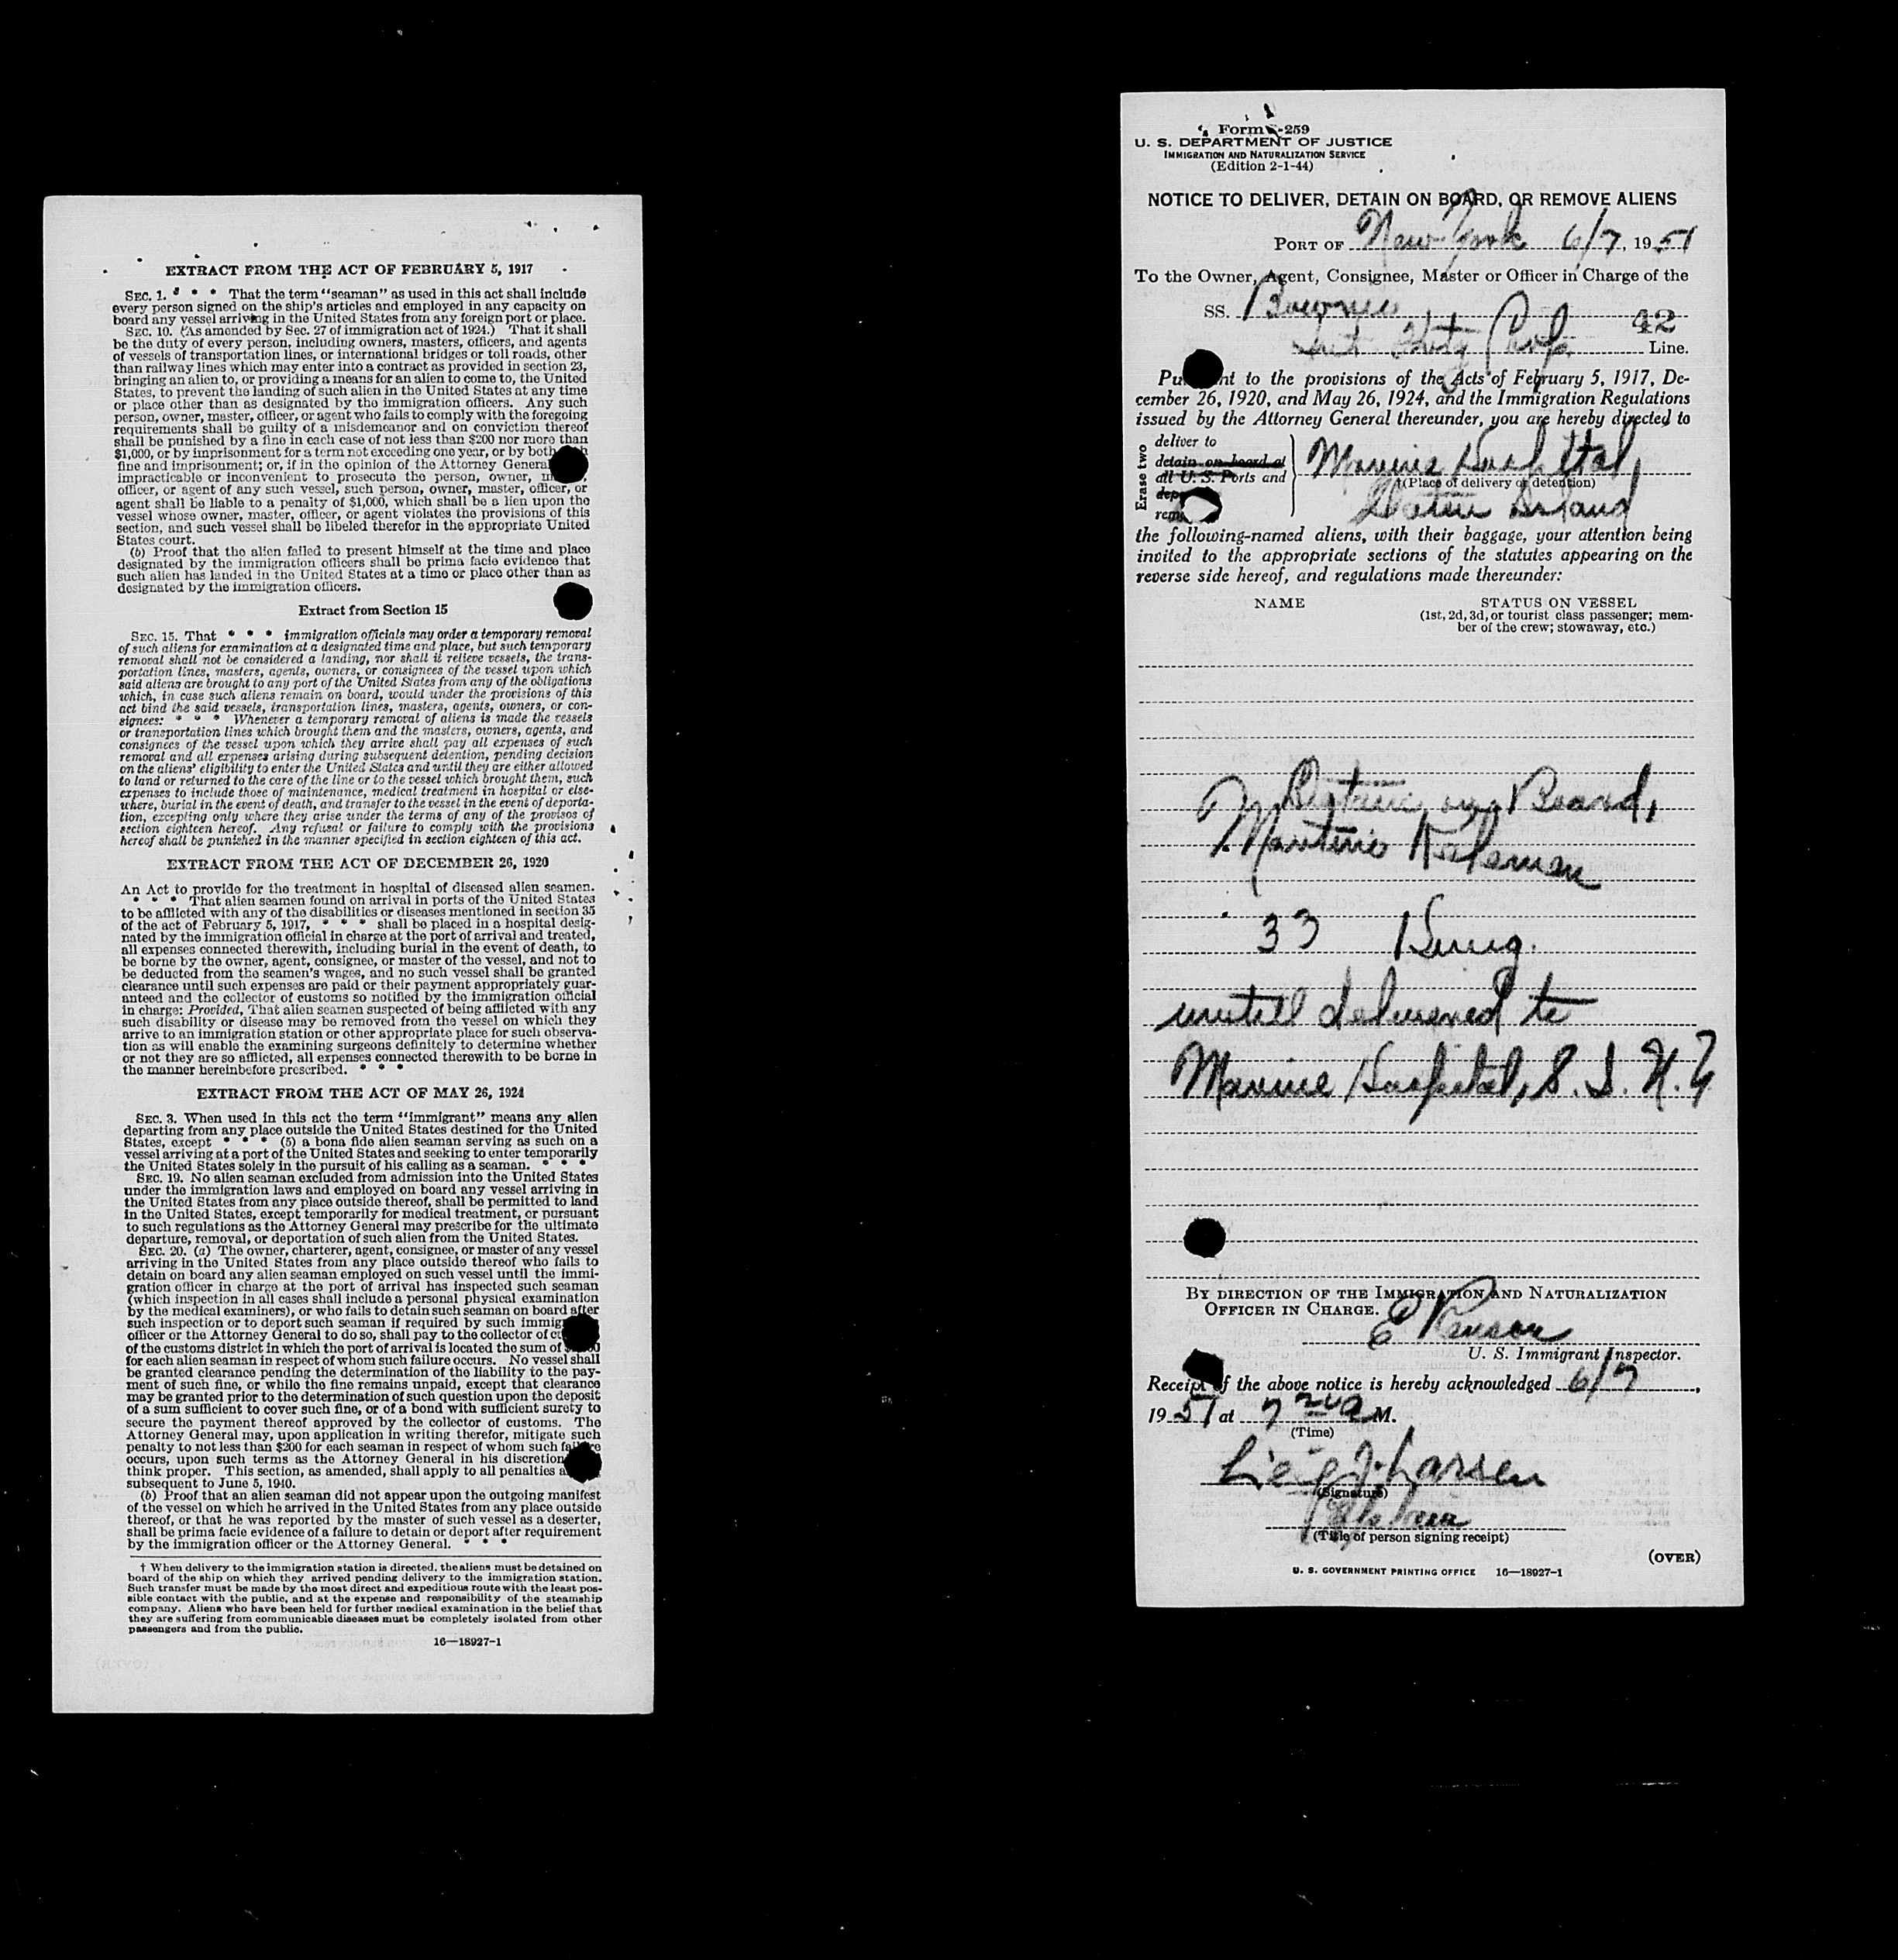 EXTRACT FROM THE ACT OF FEBRUARY 5, 1917
SEC. 1. * * * That the term "seaman" as used in this act shall include
every person signed on the ship's articles and employed in any capacity on
board any vessel arriving in the United States from any foreign port or place.
SEC. 10. (As amended by Sec. 27 of immigration act of 1924.) That it shall
be the duty of every person, including owners, masters, officers, and agents
of vessels of transportation lines, or international bridges or toll roads, other
than railway lines which may enter into a contract as provided in section 23,
bringing an alien to, or providing a means for an alien to come to, the United
States, to prevent the landing of such alien in the United States at any time
or place other than as designated by the immigration officers. Any such
person, owner, master, officer, or agent who fails to comply with the foregoing
requirements shall be guilty of a misdemeanor and on conviction thereof
shall be punished by a fine in each case of not less than $200 nor more than
$1,000, or by imprisonment for a term not exceeding one year, or by both
fine and imprisonment; or, if in the opinion of the Attorney General
impracticable or inconvenient to prosecute the person, owner,
officer, or agent of any such vessel, such person, owner, master, officer, or
agent shall be liable to a penalty of $1,000, which shall be a lien upon the
vessel whose owner, master, officer, or agent violates the provisions of this
section, and such vessel shall be libeled therefor in the appropriate United
States court.
(b) Proof that the alien failed to present himself at the time and place
designated by the immigration officers shall be prima facie evidence that
such alien has landed in the United States at a time or place other than as
designated by the immigration officers.
Extract from Section 15
SEC. 15. That * * * immigration officials may order a temporary removal
of such aliens for examination at a designated time and place, but such temporary
removal shall not be considered a landing, nor shall it relieve vessels, the trans-
portation lines, masters, agents, owners, or consignees of the vessel upon which
said aliens are brought to any port of the United States from any of the obligations
which, in case such aliens remain on board, would under the provisions of this
act bind the said vessels, transportation lines, masters, agents, owners, or con-
signees: * * * Whenever a temporary removal of aliens is made the vessels
or transportation lines which brought them and the masters, owners, agents, and
consignees of the vessel upon which they arrive shall pay all expenses of such
removal and all expenses arising during subsequent detention, pending decision
on the aliens' eligibility to enter the United States and until they are either allowed
to land or returned to the care of the line or to the vessel which brought them, such
expenses to include those of maintenance, medical treatment in hospital or else-
where, burial in the event of death, and transfer to the vessel in the event of deporta-
tion, excepting only where they arise under the terms of any of the provisos of
section eighteen hereof. Any refusal or failure to comply with the provisions
hereof shall be punished in the manner specified in section eighteen of this act.
EXTRACT FROM THE ACT OF DECEMBER 26, 1920
An Act to provide for the treatment in hospital of diseased alien seamen.
* * * That alien seamen found on arrival in ports of the United States
to be afflicted with any of the disabilities or diseases mentioned in section 35
of the act of February 5, 1917, * * * shall be placed in a hospital desig-
nated by the immigration official in charge at the port of arrival and treated,
all expenses connected therewith, including burial in the event of death, to
be borne by the owner, agent, consignee, or master of the vessel, and not to
be deducted from the seamen's wages, and no such vessel shall be granted
clearance until such expenses are paid or their payment appropriately guar-
anteed and the collector of customs so notified by the immigration official
in charge: Provided, That alien seamen suspected of being afflicted with any
such disability or disease may be removed from the vessel on which they
arrive to an immigration station or other appropriate place for such observa-
tion as will enable the examining surgeons definitely to determine whether
or not they are so afflicted, all expenses connected therewith to be borne in
the manner hereinbefore prescribed. * * *
EXTRACT FROM THE ACT OF MAY 26, 1924
SEC. 3. When used in this act the term "immigrant" means any alien
departing from any place outside the United States destined for the United
States, except * * * (5) a bona fide alien seaman serving as such on a
vessel arriving at a port of the United States and seeking to enter temporarily
the United States solely in the pursuit of his calling as a seaman. * * *
SEC. 19. No alien seaman excluded from admission into the United States
under the immigration laws and employed on board any vessel arriving in
the United States from any place outside thereof, shall be permitted to land
in the United States, except temporarily for medical treatment, or pursuant
to such regulations as the Attorney General may prescribe for the ultimate
departure, removal, or deportation of such alien from the United States.
SEC. 20. (a) The owner, charterer, agent, consignee, or master of any vessel
arriving in the United States from any place outside thereof who fails to
detain on board any alien seaman employed on such vessel until the immi-
gration officer in charge at the port of arrival has inspected such seaman
(which inspection in all cases shall include a personal physical examination
by the medical examiners), or who fails to detain such seaman on board after
such inspection or to deport such seaman if required by such
officer or the Attorney General to do so, shall pay to the collector of
of the customs district in which the port of arrival is located the sum of
for each alien seaman in respect of whom such failure occurs. No vessel shall
be granted clearance pending the determination of the liability to the pay-
ment of such fine, or while the fine remains unpaid, except that clearance
may be granted prior to the determination of such question upon the deposit
of a sum sufficient to cover such fine, or of a bond with sufficient surety to
secure the payment thereof approved by the collector of customs. The
Attorney General may, upon application in writing therefor, mitigate such
penalty to not less than $200 for each seaman in respect of whom such failure
occurs, upon such terms as the Attorney General in his discretion
think proper. This section, as amended, shall apply to all penalties
subsequent to June 5, 1940.
(b) Proof that an alien seaman did not appear upon the outgoing manifest
of the vessel on which he arrived in the United States from any place outside
thereof, or that he was reported by the master of such vessel as a deserter,
shall be prima facie evidence of a failure to detain or deport after requirement
by the immigration officer or the Attorney General. * * *
† When delivery to the immigration station is directed, the aliens must be detained on
board of the ship on which they arrived pending delivery to the immigration station.
Such transfer must be made by the most direct and expeditious route with the least pos-
sible contact with the public, and at the expense and responsibility of the steamship
company. Aliens who have been held for further medical examination in the belief that
they are suffering from communicable diseases must be completely isolated from other
passengers and from the public.
16—18927-1
Form -259
U. S. DEPARTMENT OF JUSTICE
IMMIGRATION AND NATURALIZATION SERVICE
(Edition 2-1-44)
NOTICE TO DELIVER, DETAIN ON BOARD, OR REMOVE ALIENS
PORT OF New York 6/7, 1951
To the Owner, Agent, Consignee, Master or Officer in Charge of the
SS.
42
Line.
to the provisions of the Acts of February 5, 1917, De-
cember 26, 1920, and May 26, 1924, and the Immigration Regulations
issued by the Attorney General thereunder, you are hereby directed to
Erase two
deliver to
detain on board at
all U. S. Ports and
Marine Hospital,
†(Place of delivery or detention)
Staten Island
the following-named aliens, with their baggage, your attention being
invited to the appropriate sections of the statutes appearing on the
reverse side hereof, and regulations made thereunder:
NAME
STATUS ON VESSEL
(1st, 2d, 3d, or tourist class passenger; mem-
ber of the crew; stowaway, etc.)
Detain on Board,
33
untill delivered to
Marine Hospital, S. I. N. Y
BY DIRECTION OF THE IMMIGRATION AND NATURALIZATION
OFFICER IN CHARGE.
U. S. Immigrant Inspector.
Receipt of the above notice is hereby acknowledged 6/7,
1951 at 7 M.
(Time)
Larsen
(Signature)
(Title of person signing receipt)
(OVER)
U. S. GOVERNMENT PRINTING OFFICE 16—18927-1